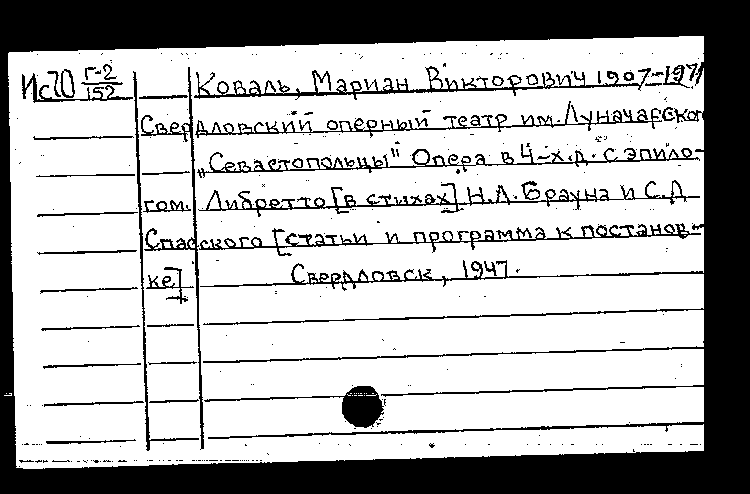 Ис70 Г-2/152
Коваль, Мариан Викторович 1907-1971
Свердловский оперный театр им. Луначарского
„Севастопольцы" Опера в 4-х д. с эпило-
гом. Либретто [в стихах] Н.Л. Брауна и С.Д
Спасского [статьи и программа к постанов-
ке]
Свердловск, 1947.